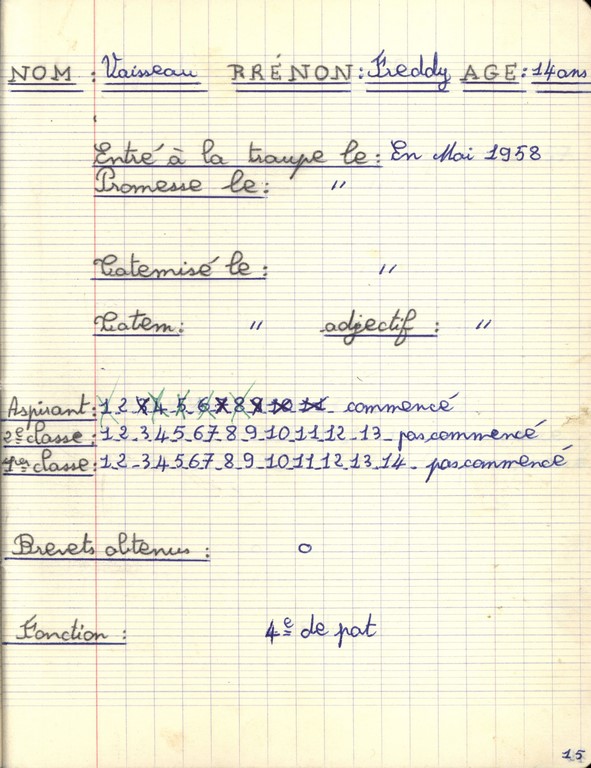 NOM : Vaisseau PRÉNON : Freddy AGE : 14 ans
Entré à la troupe le : En Mai 1958
Promesse le : "
Totemisé le : "
Totem : " adjectif : "
Aspirant : 1 2 3 4 5 6 7 8 9 10 11 commencé
2e classe : 1 2 3 4 5 6 7 8 9 10 11 12 13 pas commencé
1re classe : 1 2 3 4 5 6 7 8 9 10 11 12 13 14 pas commencé
Brevets obtenus : 0
Fonction : 4e de pat
15